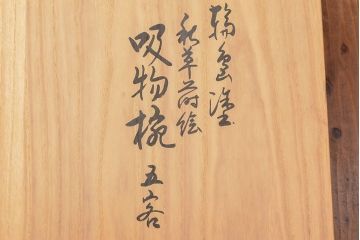 輪島塗
秋草蒔絵
吸物椀 五客